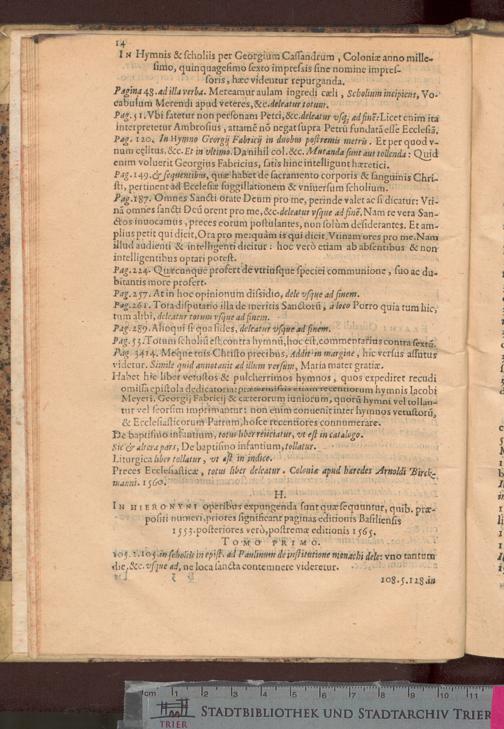 14
IN Hymnis & scholiis per Georgium Cassandrum, Coloniæ anno mille-
simo, quinquagesimo sexto impressis sine nomine impres-
soris, hæc videntur repurganda.
Pagina 48. ad illa verba. Mereamur aulam ingredi cæli, Scholium incipiens, Vo-
cabulum Merendi apud veteres, &c. deleatur totum.
Pag. 51. Vbi fatetur non personam Petri, &c. deleatur vsq, ad finẽ: Licet enim ita
interpretetur Ambrosius, attamẽ nõ negat supra Petrũ fundatã esse Ecclesiã.
Pag. 120. In Hymno Georgij Fabricij in duobus postremis metris. Et per quod v-
num cęlitus. &c. Et in vltimo. Da nihil col. &c. Mutanda sunt aut tollenda: Quid
enim voluerit Georgius Fabricius, satis hinc intelligunt hæretici.
Pag. 149. & sequentibus, quæ habet de sacramento corporis & sanguinis Chri-
sti, pertinent ad Ecclesiæ suggillationem & vniuersum scholium.
Pag. 187. Omnes Sancti orate Deum pro me, perinde valet ac si dicatur: Vti-
nã omnes sancti Deũ orent pro me, &c. deleatur vsque ad finẽ. Nam re vera San-
ctos inuocamus, preces eorum postulantes, non solùm desiderantes. Et am-
plius petit qui dicit, Ora pro me, quàm is qui dicit, Vtinam ores pro me. Nam
illud audienti & intelligenti dicitur: hoc verò etiam ab absentibus & non
intelligentibus optari potest.
Pag. 224. Quæcunque profert de vtriusque speciei communione, suo ac du-
bitantis more profert.
Pag. 257. At in hoc opinionum dissidio, dele vsque ad finem.
Pag. 261. Tota disputatio illa de meritis Sanctorũ, à loco Porro quia tum hîc,
tum alibi, deleatur totum vsque ad finem.
Pag. 289. Alioqui si qua fides, deleatur vsque ad finem.
Pag. 53. Totum scholiũ est contra hymnũ, hoc est, commentarius contra sextũ.
Pag. 3414. Meque tuis Christo precibus, Addit in margine, hic versus assutus
videtur. Simile quid annotauit ad illum versum, Maria mater gratiæ.
Habet hic liber vetustos & pulcherrimos hymnos, quos expediret recudi
omissa epistola dedicatoria: prætermissis etiam recentiorum hymnis Iacobi
Meyeri, Georgij Fabricij & cæterorum iuniorum, quorũ hymni vel tollan-
tur vel seorsim imprimantur: non enim conuenit inter hymnos vetustorũ,
& Ecclesiasticorum Patrum, hosce recentiores connumerare.
De baptismo infantium, totus liber reiiciatur, vt est in catalogo.
Sic & altera pars, De baptismo infantium, tollatur.
Liturgica liber tollatur, vt est in indice.
Preces Ecclesiasticæ, totus liber deleatur. Coloniæ apud hæredes Arnoldi Birck-
manni. 1560.
H.
IN HIERONYMI operibus expungenda sunt quæ sequuntur, quib. præ-
positi numeri, priores significant paginas editionis Basiliensis
1553. posteriores verò, postremæ editionis 1565.
TOMO PRIMO.
105. 2. 105 in scholiis in epist. ad Paulinum de institutione monachi dele: vno tantum
die, &c. vsque ad, ne loca sancta contemnere videretur.
108. 5. 128. in
cm 1 2 3 4 5 6 7 8 9 10 11
TRIER
STADTBIBLIOTHEK UND STADTARCHIV TRIER